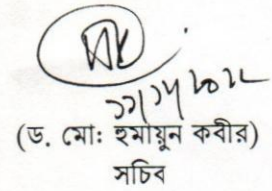 (ড. মো: হুমায়ুন কবীর)
সচিব